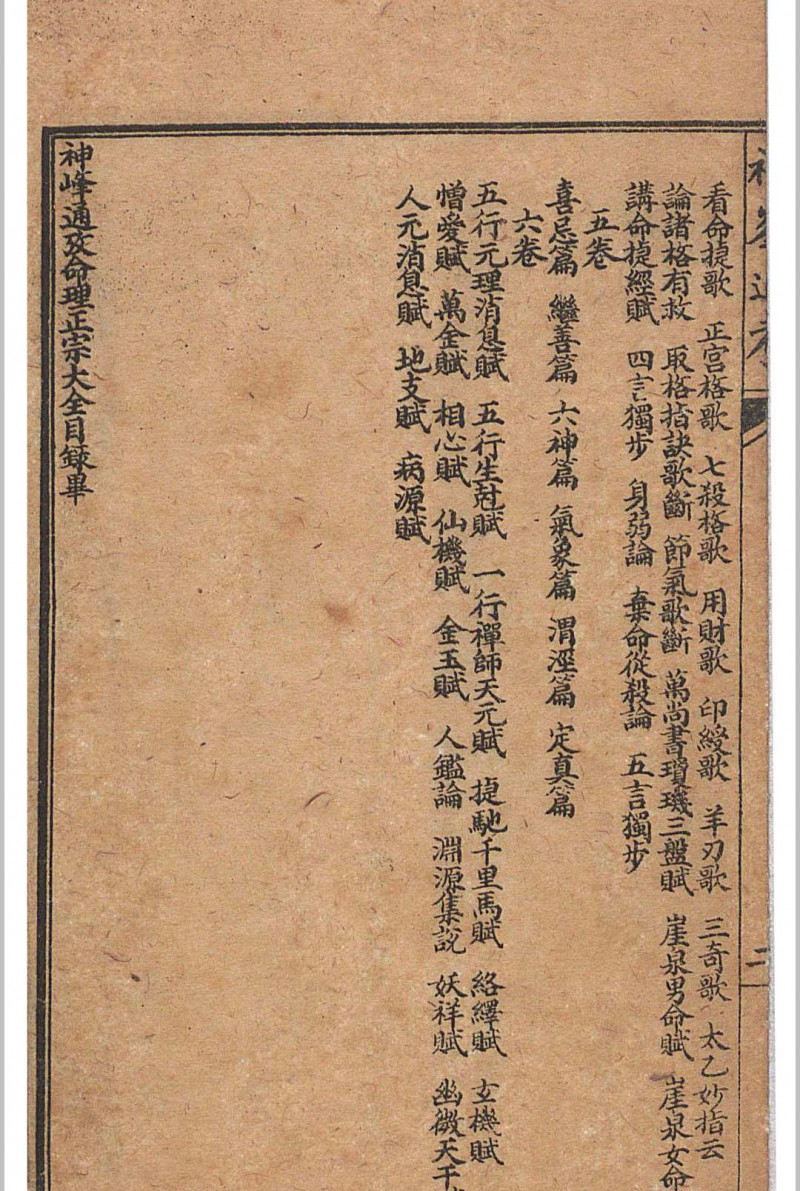 看命捷歌 正宮格歌 七殺格歌 用財歌 印綬歌 羊刃歌 三奇歌 太乙妙指云
論諸格有救 取格指訣歌斷 節氣歌斷 萬尚書璇璣三盤賦 崖泉男命賦 崖泉女命
講命捷經賦 四言獨步 身弱論 棄命從殺論 五言獨步
五卷
喜忌篇 繼善篇 六神篇 氣象篇 渭涇篇 定真篇
六卷
五行元理消息賦 五行生尅賦 一行禪師天元賦 捷馳千里馬賦 絡繹賦 玄機賦
憎愛賦 萬金賦 相心賦 仙機賦 金玉賦 人鑑論 淵源集說 妖祥賦 幽微天干
人元消息賦 地支賦 病源賦
神峰通攷命理正宗大全目錄畢